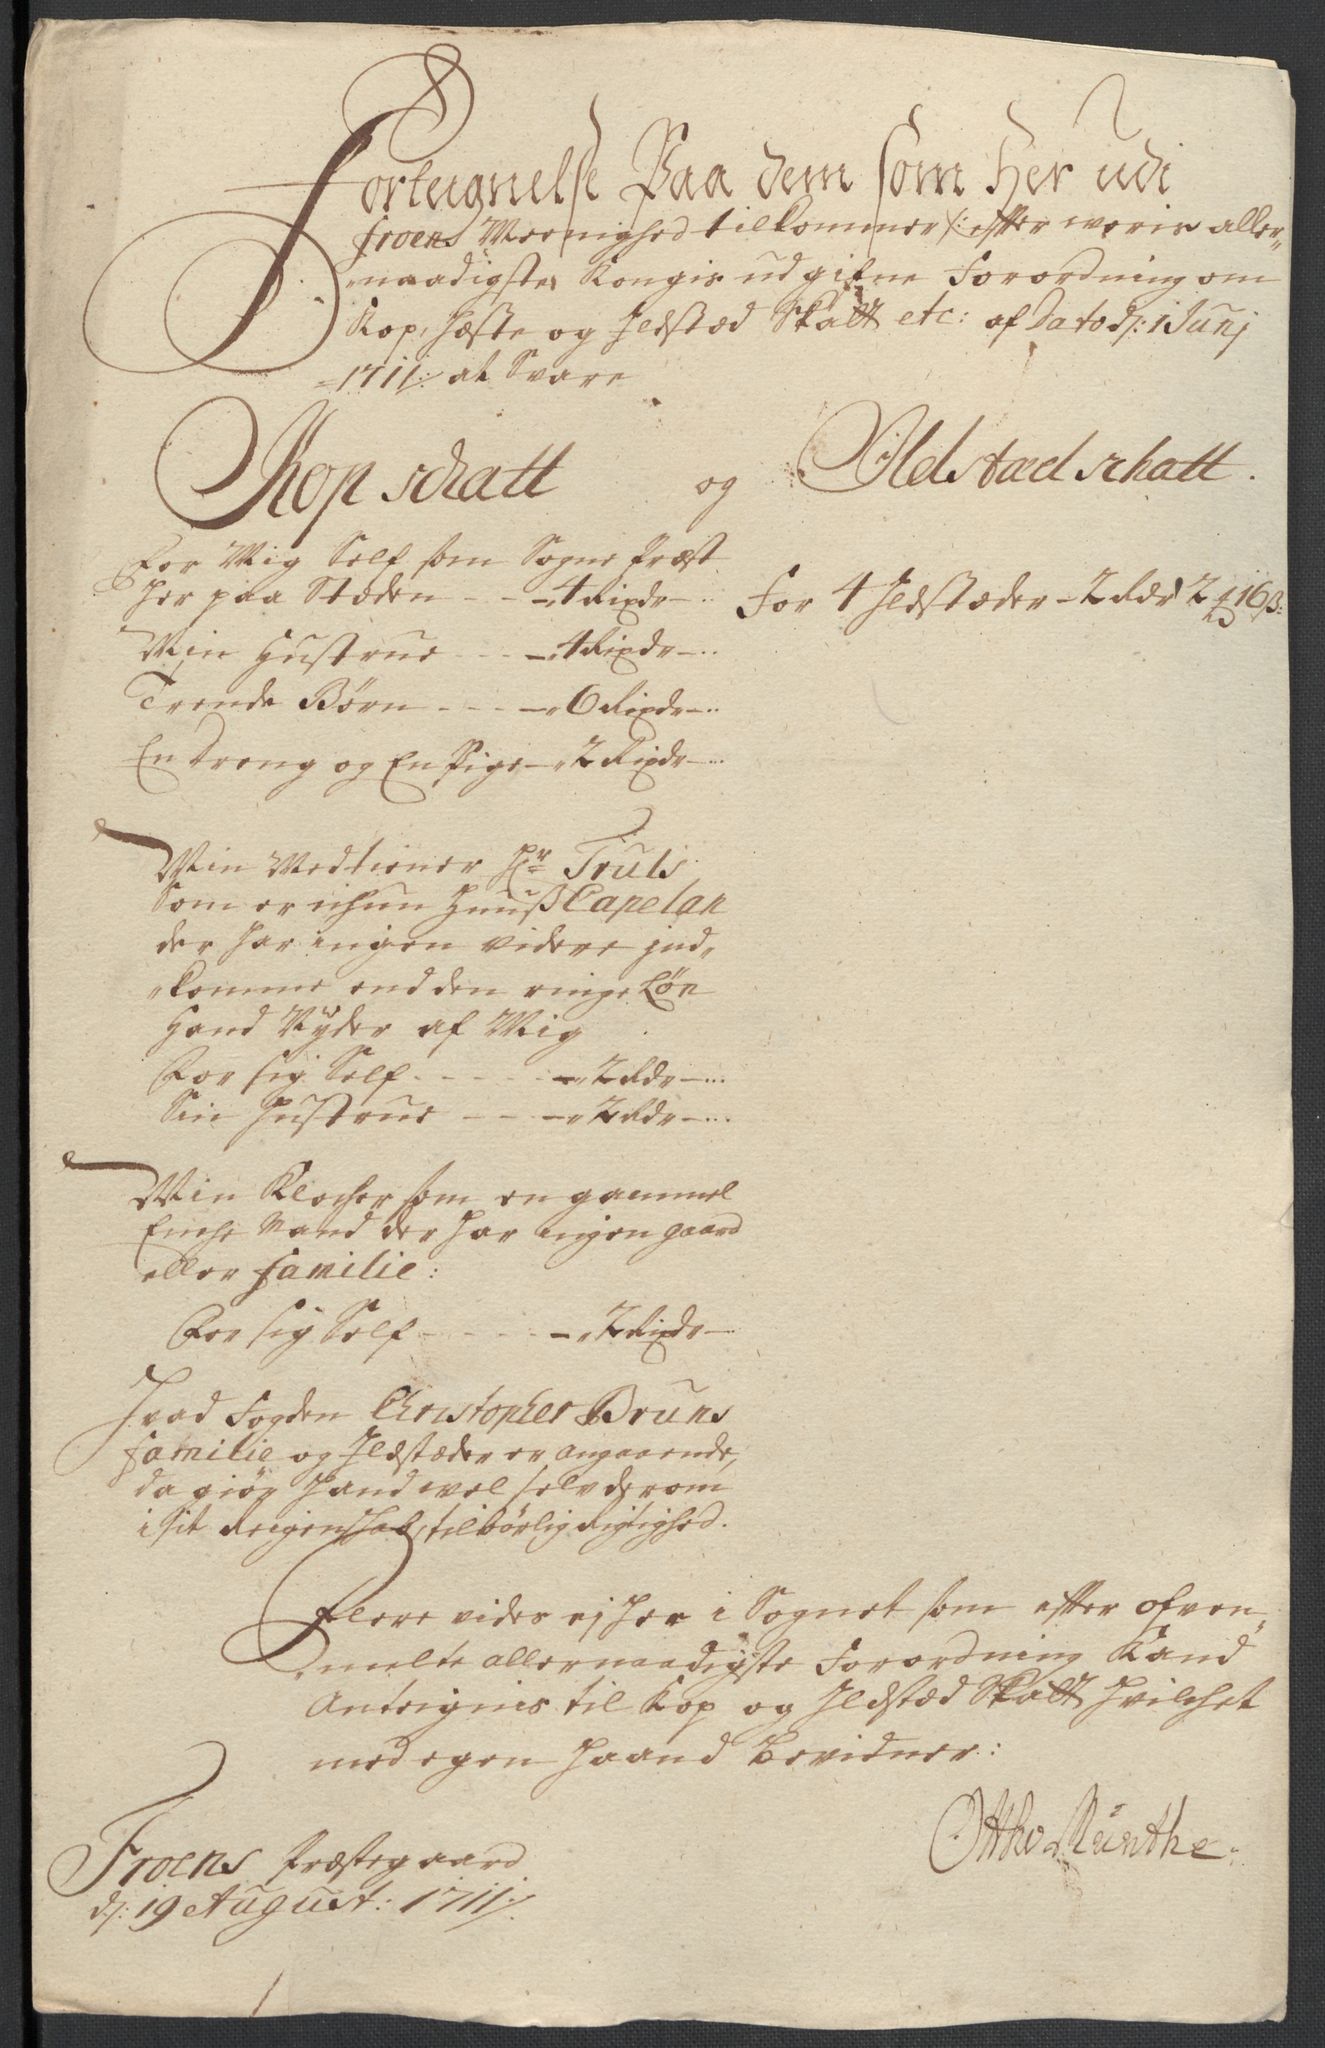 Forteignelse Paa dem som Her udi
Froens Meenighed tilkommer /: efter woris aller„
„naadigste Kongis udgifne Forordning om
Kop, Hæste og Ildstæd Skatt etc: af Dato d: 1 Junj
1711 :/ at Svare
Kopschatt og Ildstædschatt.
For Mig Self som Sogne Præst
her paa Stæden - - 4 Rixdr - For 4 Ildstæder - 2 Rdr 2 ℔ 16 β:
Min Hustrue - - - 4 Rixdr -
Trende Børn - - - - 6 Rixdr -
En dreng og En Pige - 2 Rixdr -
Min Medtiener Hr Truls
Som er ichun Huuß Capelan
der har ingen videre ind„
„komme end den ringe Løn
Hand Nyder af Mig
For sig Self - - - - 2 Rdr -
Sin Hustrue - - - 2 Rdr -
Min Klocher som en gammel
Enche Mand der har ingen gaard
eller familie:
For sig Self - - - - 2 Rixdr -
Hvad Fogden Christopher Bruns
familie og Ildstæder er angaaende,
da giør Hand wel selv derom
i sit Reigenschab, tilbørlig Rigtighed.
Flere vides ej her i Sognet som efter ofven„
„melte allernaadigste Forordning Kand
Anteignis til Kop og Ildstæd Skatt Hvilchet
med egen Haand Bevidner:
Ottho Munthe
Froens Præstegaard
d: 19 August: 1711